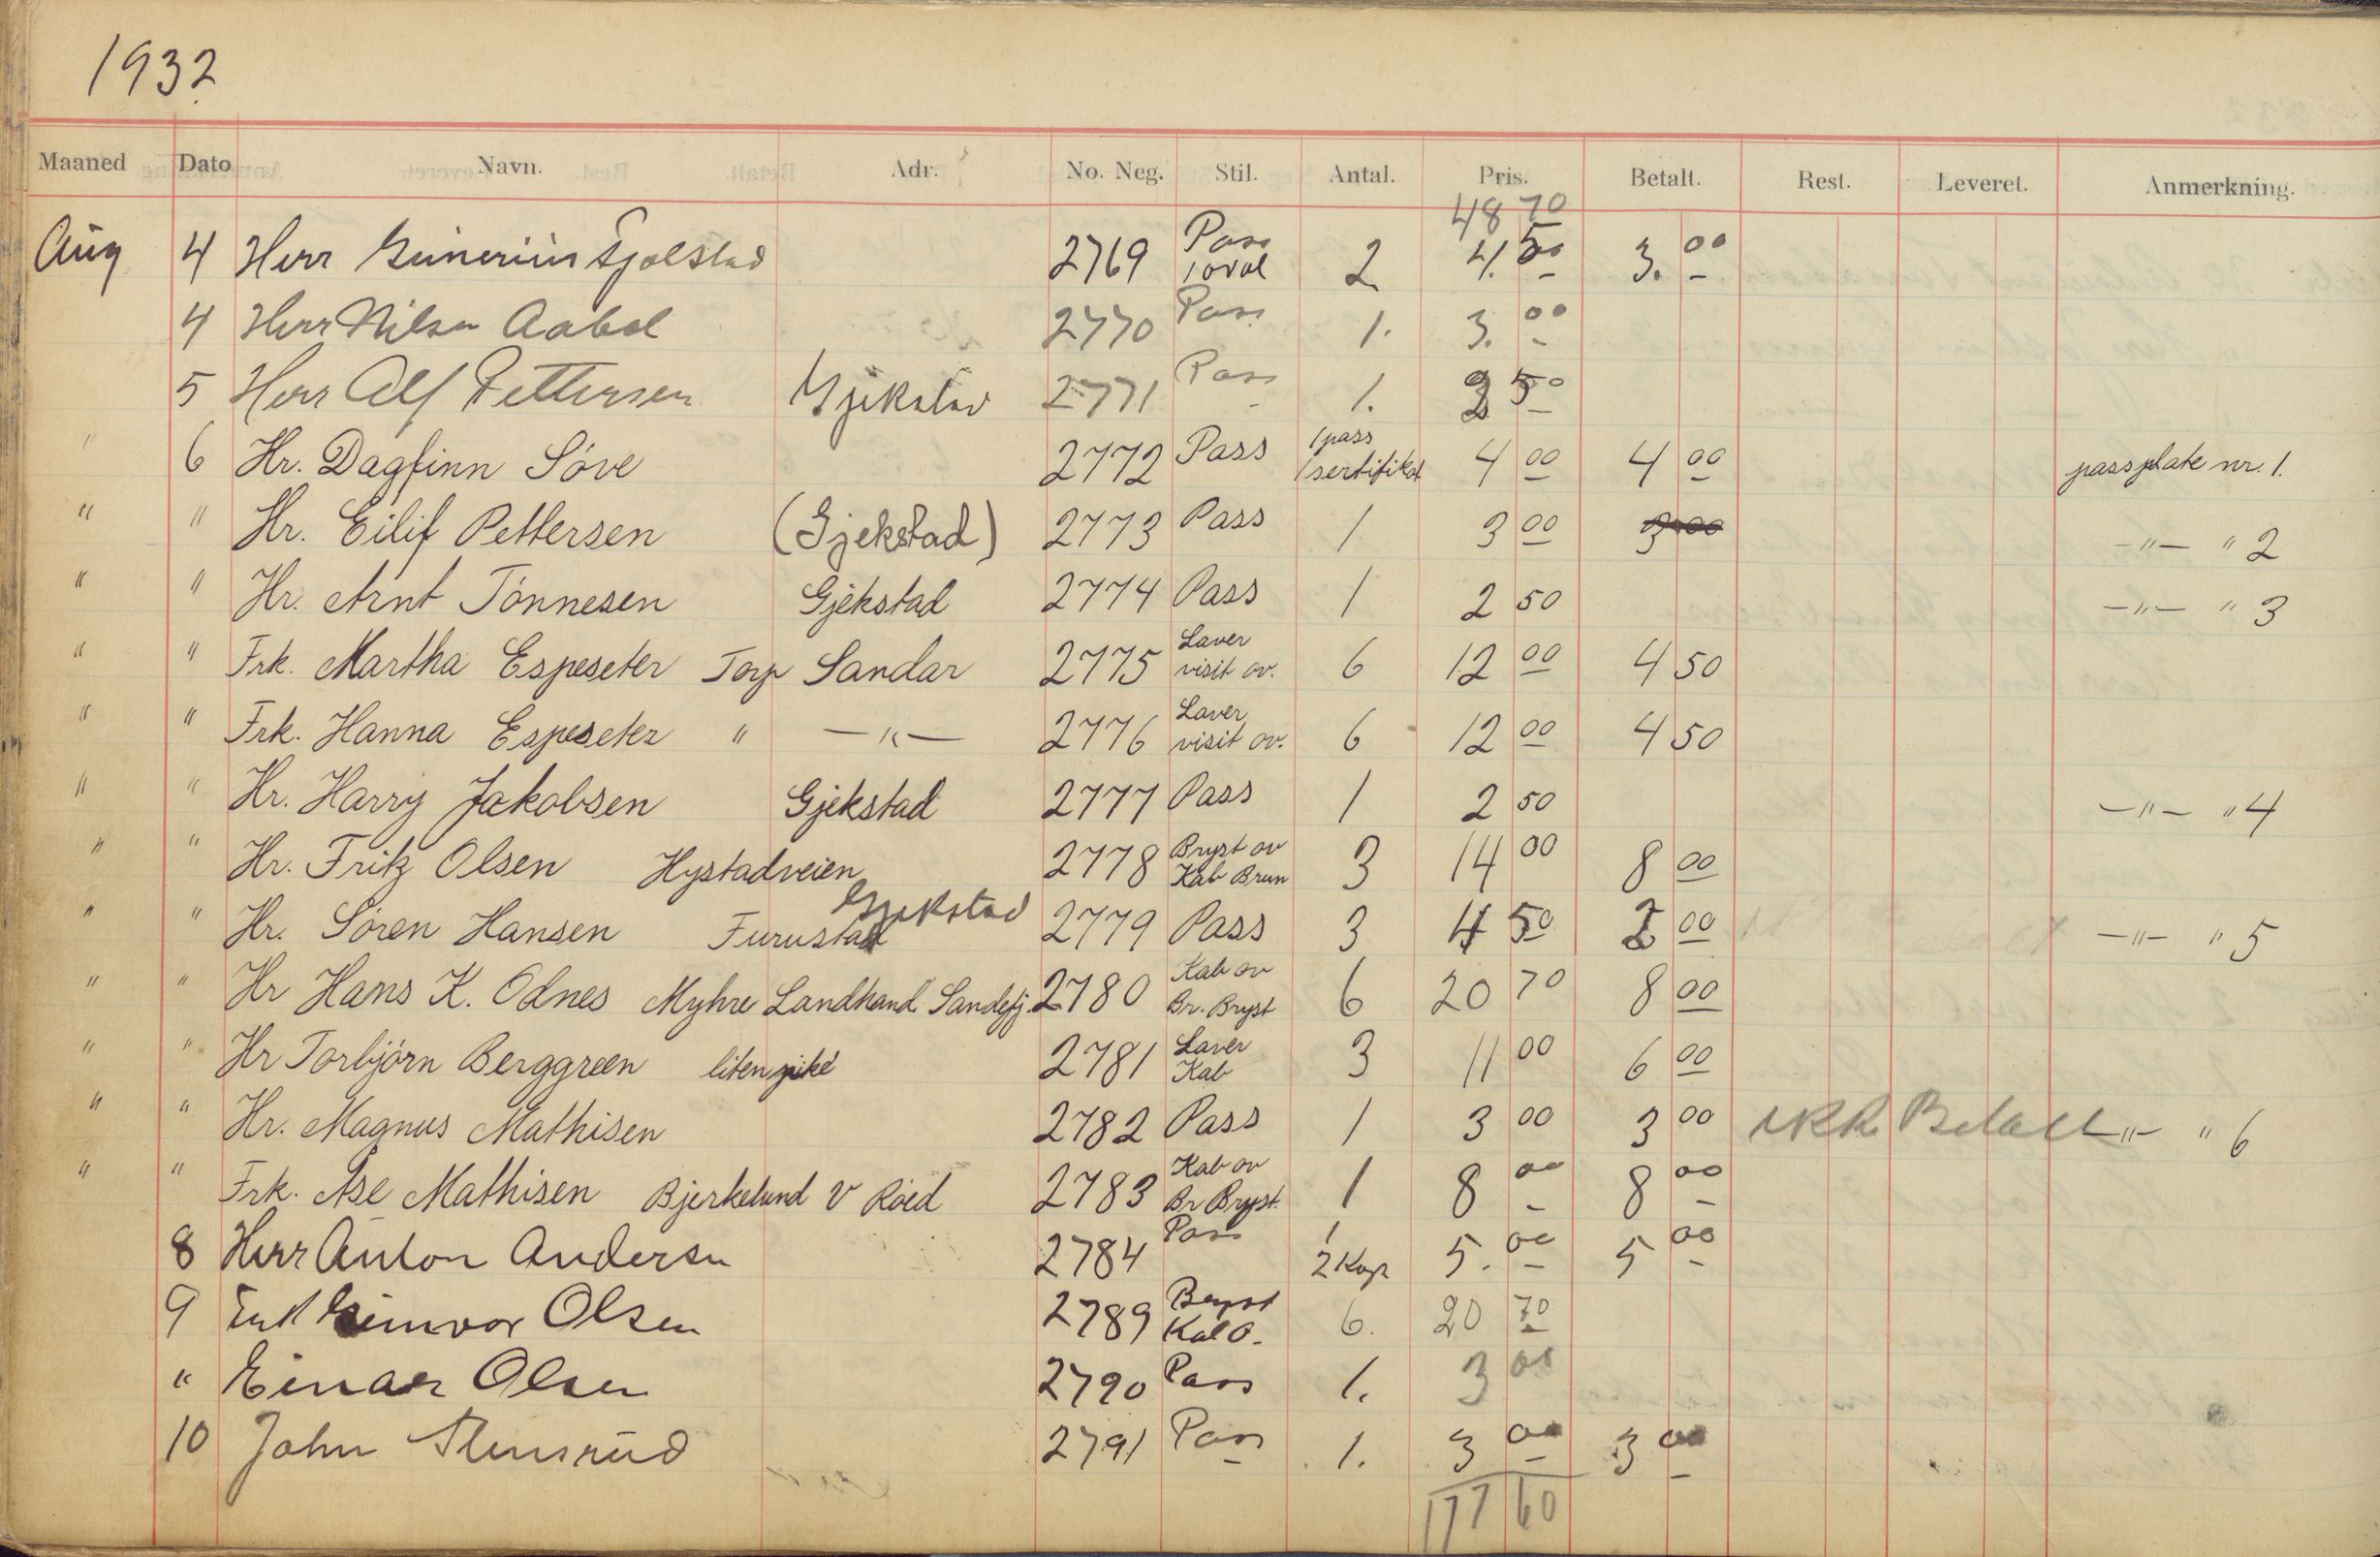 1932
Maaned Dato Navn. Adr. No. Neg. Stil. Antal. Pris. Betalt. Rest. Leveret. Anmerkning.
48 70
Aug 4 Herr 2769 Pass 1 oval 2 4. 50 3. 00
4 Herr Nilsen Aabol 2770 Pass 1. 3. 00
5 Herr Alf Pettersen Gjekstad 2771 Pass 1. 2 50
" 6 Hr. Dagfinn Söve 2772 Pass 1 pass 1 sertifikat 4 00 4 00 passplate nr. 1.
" " Hr. Eilif Pettersen (Gjekstad) 2773 Pass 1 3 00 3 00 —"— " 2
" " Hr. Arnt Tönnesen Gjekstad 2774 Pass 1 2 50 —"— " 3
" " Frk. Martha Espeseter Torp Sandar 2775 Laver visit ov. 6 12 00 4 50
" " Frk. Hanna Espeseter " —"— 2776 Laver visit ov. 6 12 00 4 50
" " Hr. Harry Jakobsen Gjekstad 2777 Pass 1 2 50 —"— " 4
" " Hr. Fritz Olsen Hystadveien 2778 Bryst ov Kab Brun 3 14 00 8 00
" " Hr. Sören Hansen Furustad Gjekstad 2779 Pass 3 4 50 2 00 —"— " 5
" " Hr Hans K. Odnes Myhre Landhand. Sandefj. 2780 Kab ov Br. Bryst 6 20 70 8 00
" " Hr Torbjörn Berggreen liten pike 2781 Laver Kab 3 11 00 6 00
" " Hr. Magnus Mathisen 2782 Pass 1 3 00 3 00 ikke Betalt —"— " 6
" " Frk. Åse Mathisen Bjerkelund v Röed 2783 Kab ov Br Bryst. 1 8 00 8 00
8 Herr Anton Andersen 2784 Pass 1 2 Kop 5. 00 5 00
9 Frk Gunvor Olsen 2789 Bryst Kab O. 6. 20 70
" Einar Olsen 2790 Pass 1. 3 00
10 John Stensrud 2791 Pass 1. 3 00 3 00
177 60